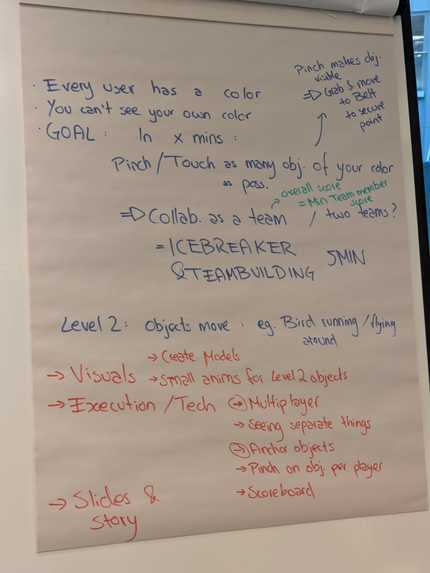 Pinch makes obj.
visible
⇒ Grab & move
to Belt
to secure
point
· Every user has a color
· You can't see your own color
· GOAL: In x mins:
Pinch/Touch as many obj. of your color
as pos.
→ overall score
= Min Team member
score
⇒ Collab. as a team / two teams?
= ICEBREAKER
& TEAMBUILDING 5MIN
Level 2: Objects move: eg. Bird running/flying
around
→ Create Models
→ Visuals → Small anims for Level 2 objects
→ Execution/Tech → Multiplayer
→ Seeing separate things
→ Anchor objects
→ Pinch on obj per player
→ Scoreboard
→ Slides &
Story